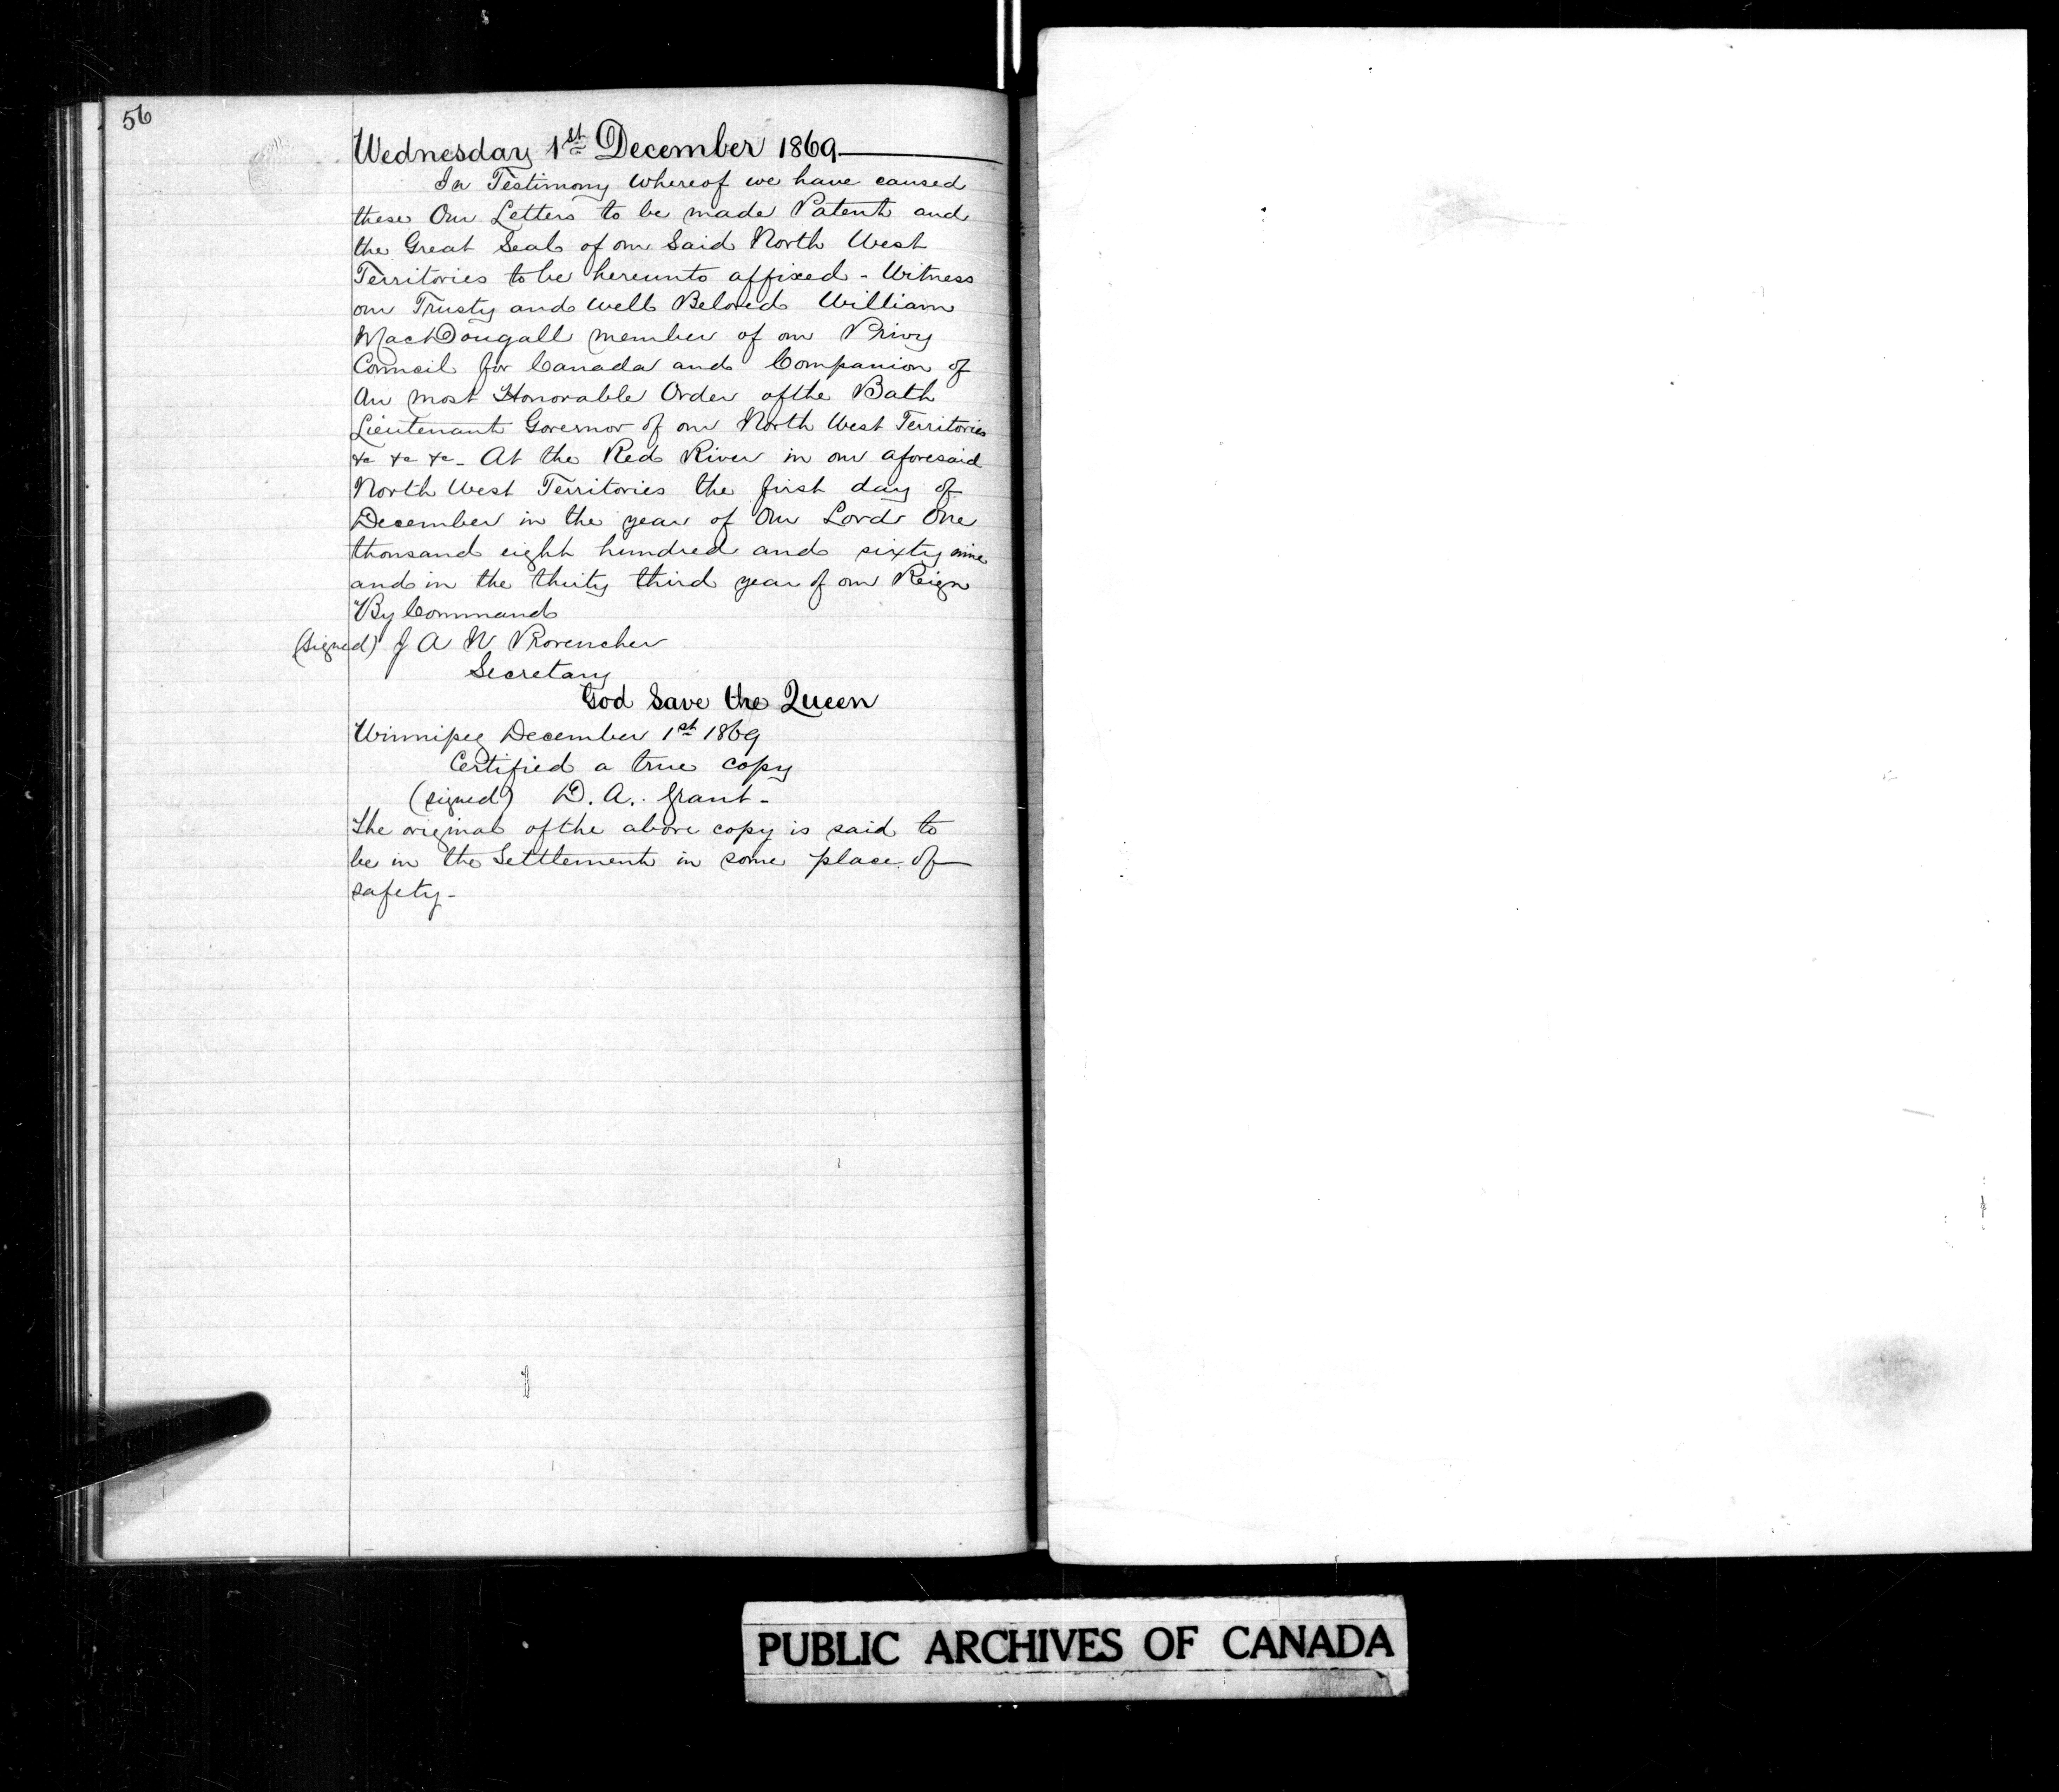 56
Wednesday 1st December 1869
In Testimony Whereof we have caused
these Our Letters to be made Patent and
the Great Seal of our Said North West
Territories to be hereunto affixed - Witness
our Trusty and Well Beloved William
MacDougall member of our Privy
Council for Canada and Companion of
Our most Honorable Order of the Bath
Lieutenant Governor of our North West Territories
&c &c &c - At the Red River in our aforesaid
North West Territories the first day of
December in the year of Our Lord One
thousand eight hundred and sixty nine
and in the thirty third year of our Reign
By Command
(signed) J A N Provencher
Secretary
God Save the Queen
Winnipeg December 1st 1869
Certified a true copy
(signed) D. A. Grant -
The original of the above copy is said to
be in the Settlement in some place of
safety -
PUBLIC ARCHIVES OF CANADA